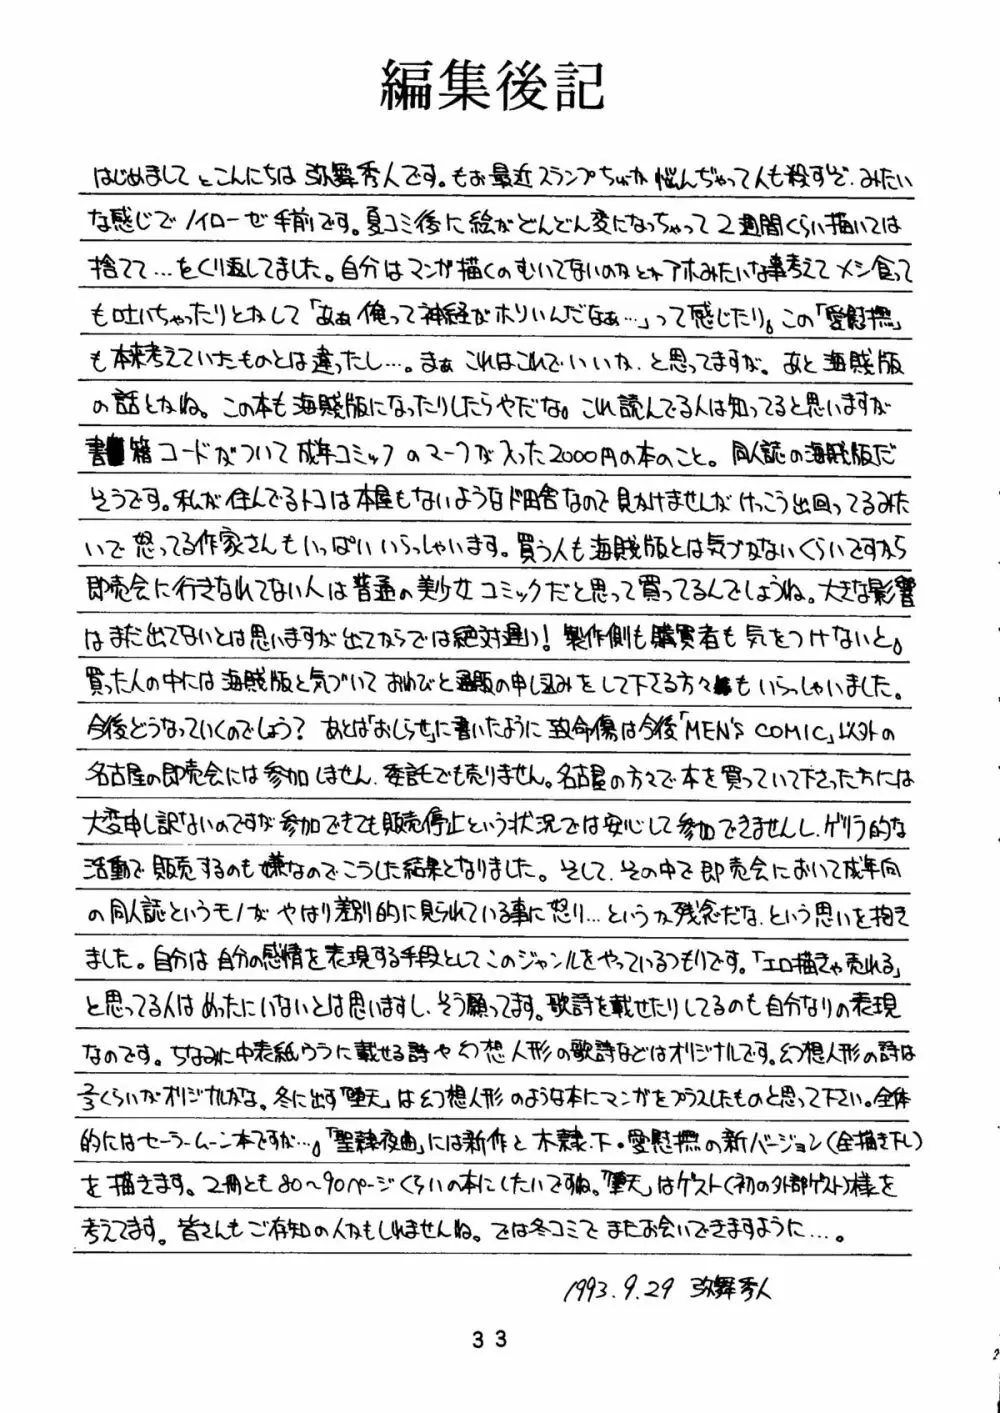 編集後記
はじめまして とこんにちは 弥舞秀人です。もお最近スランプちゅか 悩んぢゃって人も殺すぞ、みたい
な感じでノイローゼ手前です。夏コミ後に絵がどんどん変になっちゃって2週間くらい描いては
捨てて…をくり返してました。自分はマンガ描くのむいてないのかとかアホみたいな事考えてメシ食って
も吐いちゃったりとかして「あぁ俺って神経がホソいんだなぁ…」って感じたり。この「愛慰撫」
も本来考えていたものとは違ったし…。まぁ これはこれでいいか、と思ってますが。あと 海賊版
の話とかね。この本も海賊版になったりしたらやだな。これ読んでる人は知ってると思いますが
書籍コードがついて成年コミックのマークが入った2000円の本のこと。同人誌の海賊版だ
そうです。私が住んでるトコは本屋もないようなド田舎なので見かけませんがけっこう出回ってるみた
いで怒ってる作家さんもいっぱいいらっしゃいます。買う人も海賊版とは気づかないくらいですから
即売会に行きなれてない人は普通の美少女コミックだと思って買ってるんでしょうね。大きな影響
はまだ出てないとは思いますが出てからでは絶対遅い！製作側も購買者も気をつけないと。
買った人の中には海賊版と気づいておわびと通販の申し込みをして下さる方々もいらっしゃいました。
今後どうなっていくのでしょう？ あとは「おしらせ」に書いたように致命傷は今後「MEN'S COMIC」以外の
名古屋の即売会には参加しません、委託でも売りません。名古屋の方々で本を買っていて下さった方には
大変申し訳ないのですが参加できても販売停止という状況では安心して参加できませんし、ゲリラ的な
活動で販売するのも嫌なのでこうした結果となりました。そして、その中で即売会において成年向
の同人誌というモノがやはり差別的に見られている事に怒り…というか残念だな、という思いを抱き
ました。自分は自分の感情を表現する手段としてこのジャンルをやっているつもりです。「エロ描きゃ売れる」
と思ってる人はめったにいないとは思いますし、そう願ってます。歌詩を載せたりしてるのも自分なりの表現
なのです。ちなみに中表紙ウラに載せる詩や幻想人形の歌詩などはオリジナルです。幻想人形の詩は
くらいがオリジナルかな。冬に出す「堕天」は幻想人形のような本にマンガをプラスしたものと思って下さい。全体
的にはセーラームーン本ですが…。「聖隷夜曲」には新作と 木隷、下・愛慰撫の新バージョン(全描き下し)
を描きます。2冊とも80〜90ページくらいの本にしたいですね。「堕天」はゲスト(初の外部ゲスト)様を
考えてます。皆さんもご存知の人かもしれませんね。では冬コミでまたお会いできますように…。
1993.9.29 弥舞秀人
33